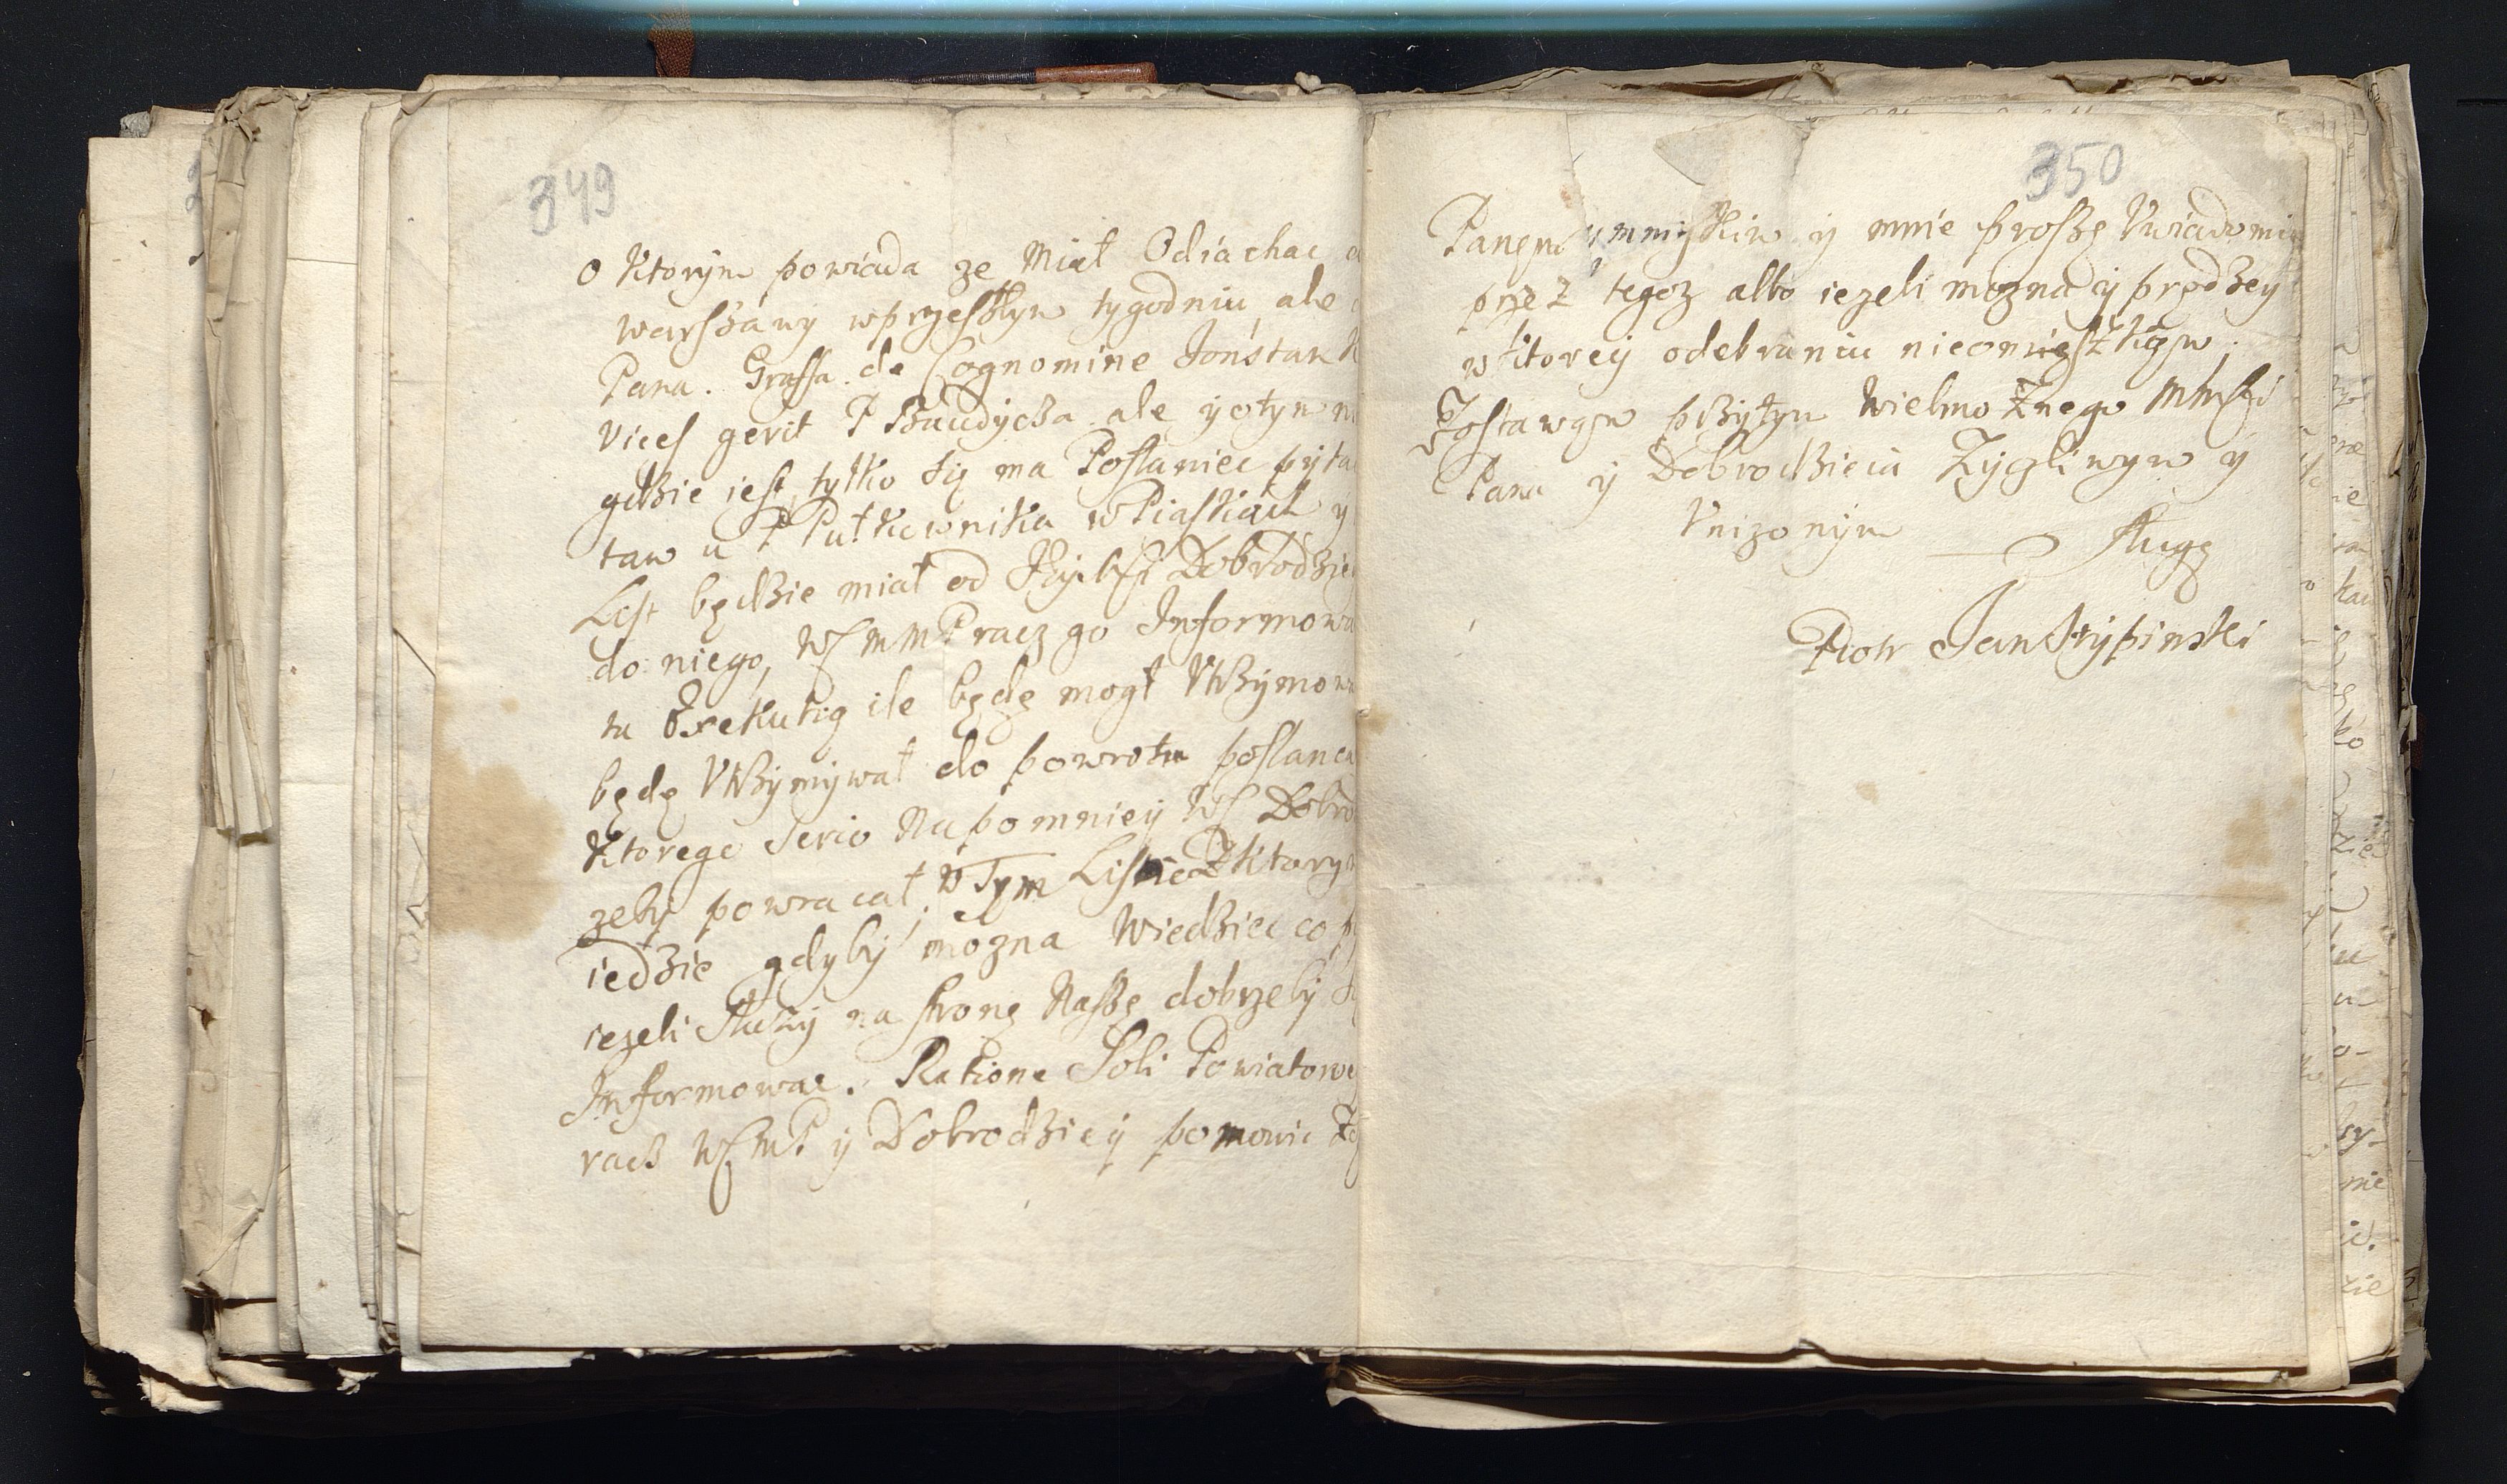 349
o Ktorym powiada ze Miał Odiachac
warszawy wprzeszłym tygodniu, ale
Pana. Graffa de Cognomine
vices gerit P ale y otym
gdzie iest tylko się ma Posłaniec pyta
tam u P Pułkownika w Piaskach y
List będzie miał od Dobrodzie
do niego, WM M P racz go Informowa
tu Exekutią ile będę mogł Vtrzymowa
będę Vtrzymywał do powrotu posłanca
Ktorego serio Napomniey WM Dobro
zeby powracał. W Tym Liscie Z Ktorym
iedzie gdyby mozna Wiedziec co
iezeli słuzy na stronę Naszę dobrzeby
Informowac. Ratione Soli Powiatowe
racz WM P y Dobrodziey pomowic
350
Panem y mnie proszę Vwiadomic
przez tegoz albo iezeli mozna y prędzey
w Ktorey odebraniu nieomieszkam.
Zostawam przytym Wielmoznego
Pana y Dobrodzieia Zyczliwym y
Vnizonym sługą
Piotr Jan Strypinski